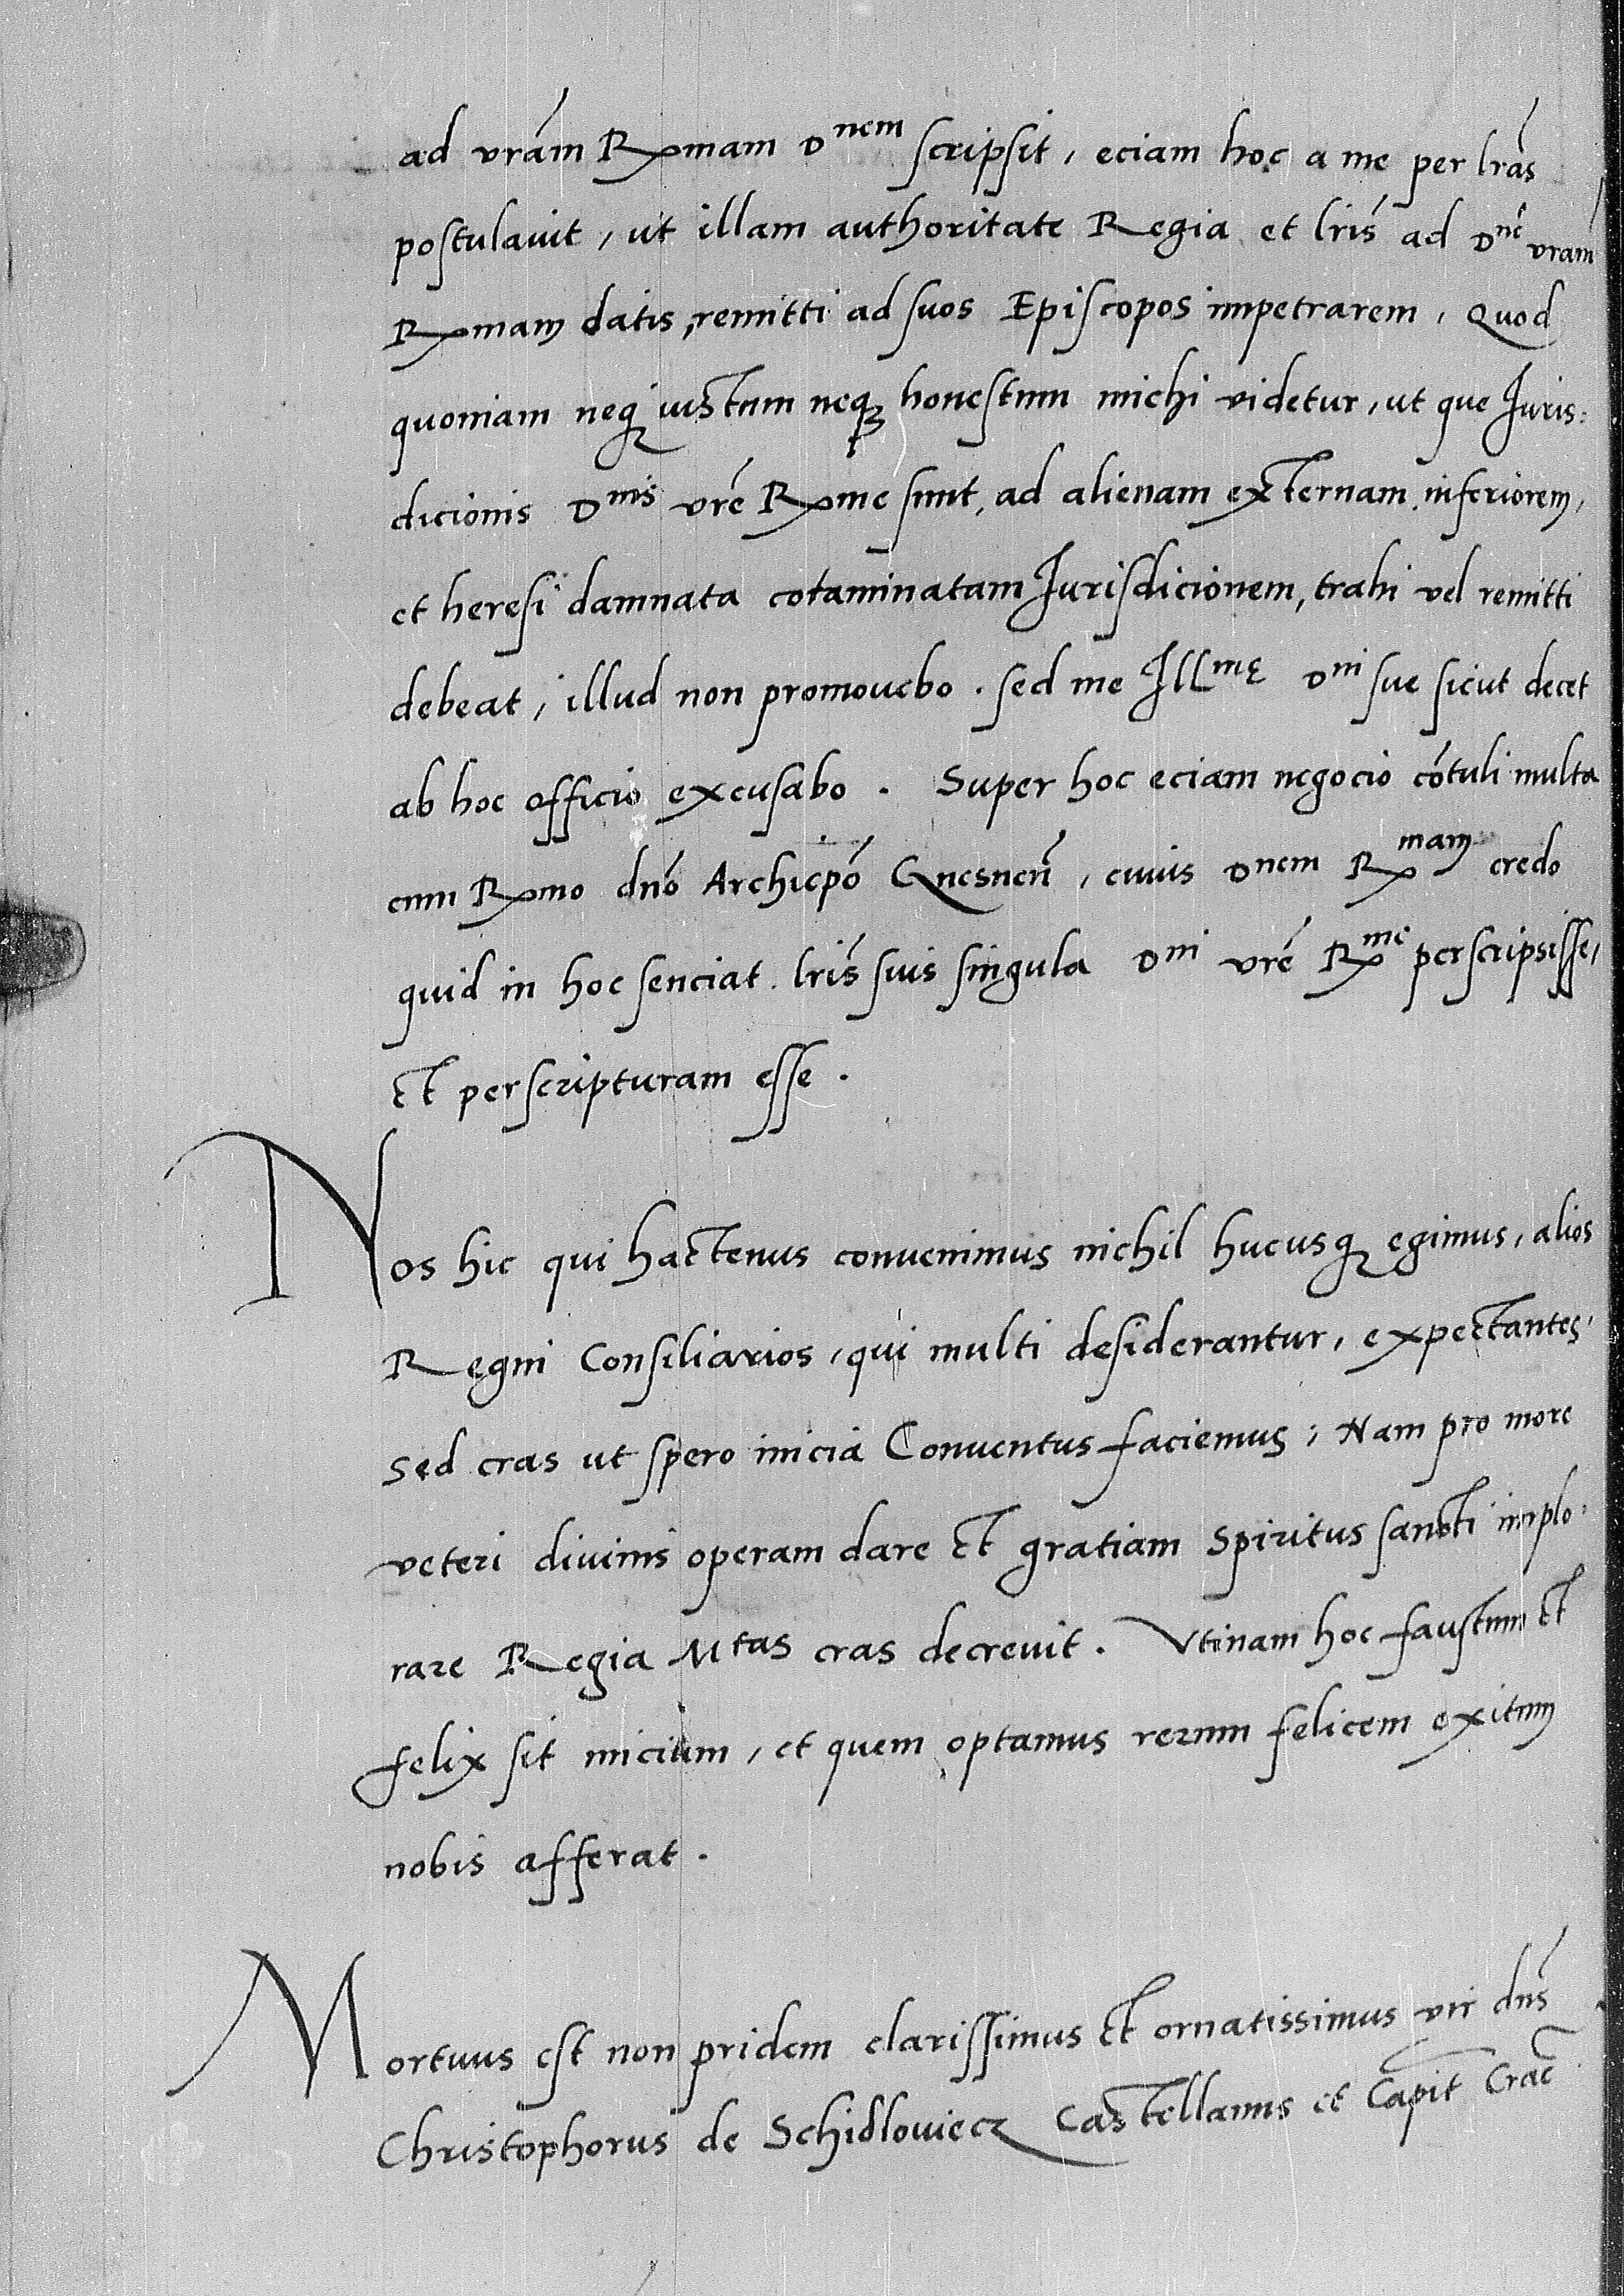 ad vrām Rxmam Dnem scripsit, eciam hoc a me per lrās
postulavit, ut illam authoritate Regia et lrīs ad Dnē vram
Rxmam datis, remitti ad suos Episcopos impetrarem, Quod
quoniam neq iustum neq honestum michi videtur, ut que Juris:
dicionis Dnis vrē Rxme sunt, ad alienam externam inferiorem,
et heresi damnata cotaminatam Jurisdicionem, trahi vel remitti
debeat, illud non promovebo. sed me Illme Dni sue sicut decet
ab hoc officio excusabo. Super hoc eciam negocio cōtuli multa
cum Rxmo dnō Archiepō Gnesnen̄, cuius Dnem Rxmam credo
quid in hoc senciat lrīs suis singula Dni vrē Rxme perscripsisse,
et perscripturam esse.
Nos hic qui hactenus convenimus nichil hucusq egimus, alios
Regni Consiliarios, qui multi desiderantur, expectantes,
Sed cras ut spero inicia Conventus faciemus; Nam pro more
veteri divinis operam dare et gratiam Spiritus sancti implo:
rare Regia Mtas cras decrevit. Vtinam hoc faustum et
felix sit inicium, et quem optamus rerum felicem exitum
nobis afferat.
Mortuus est non pridem clarissimus et ornatissimus vir dn̄s
Christophorus de Schidloviecz Castellanus et Capit Crac̄